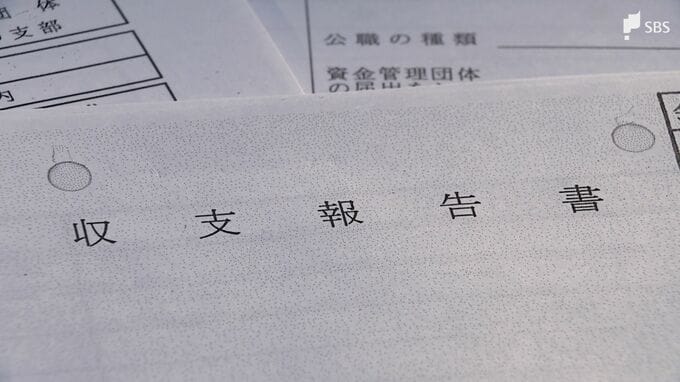 団 体
支部
公職の種類
資金管理団体
の届出
内
収支報告書
SBS